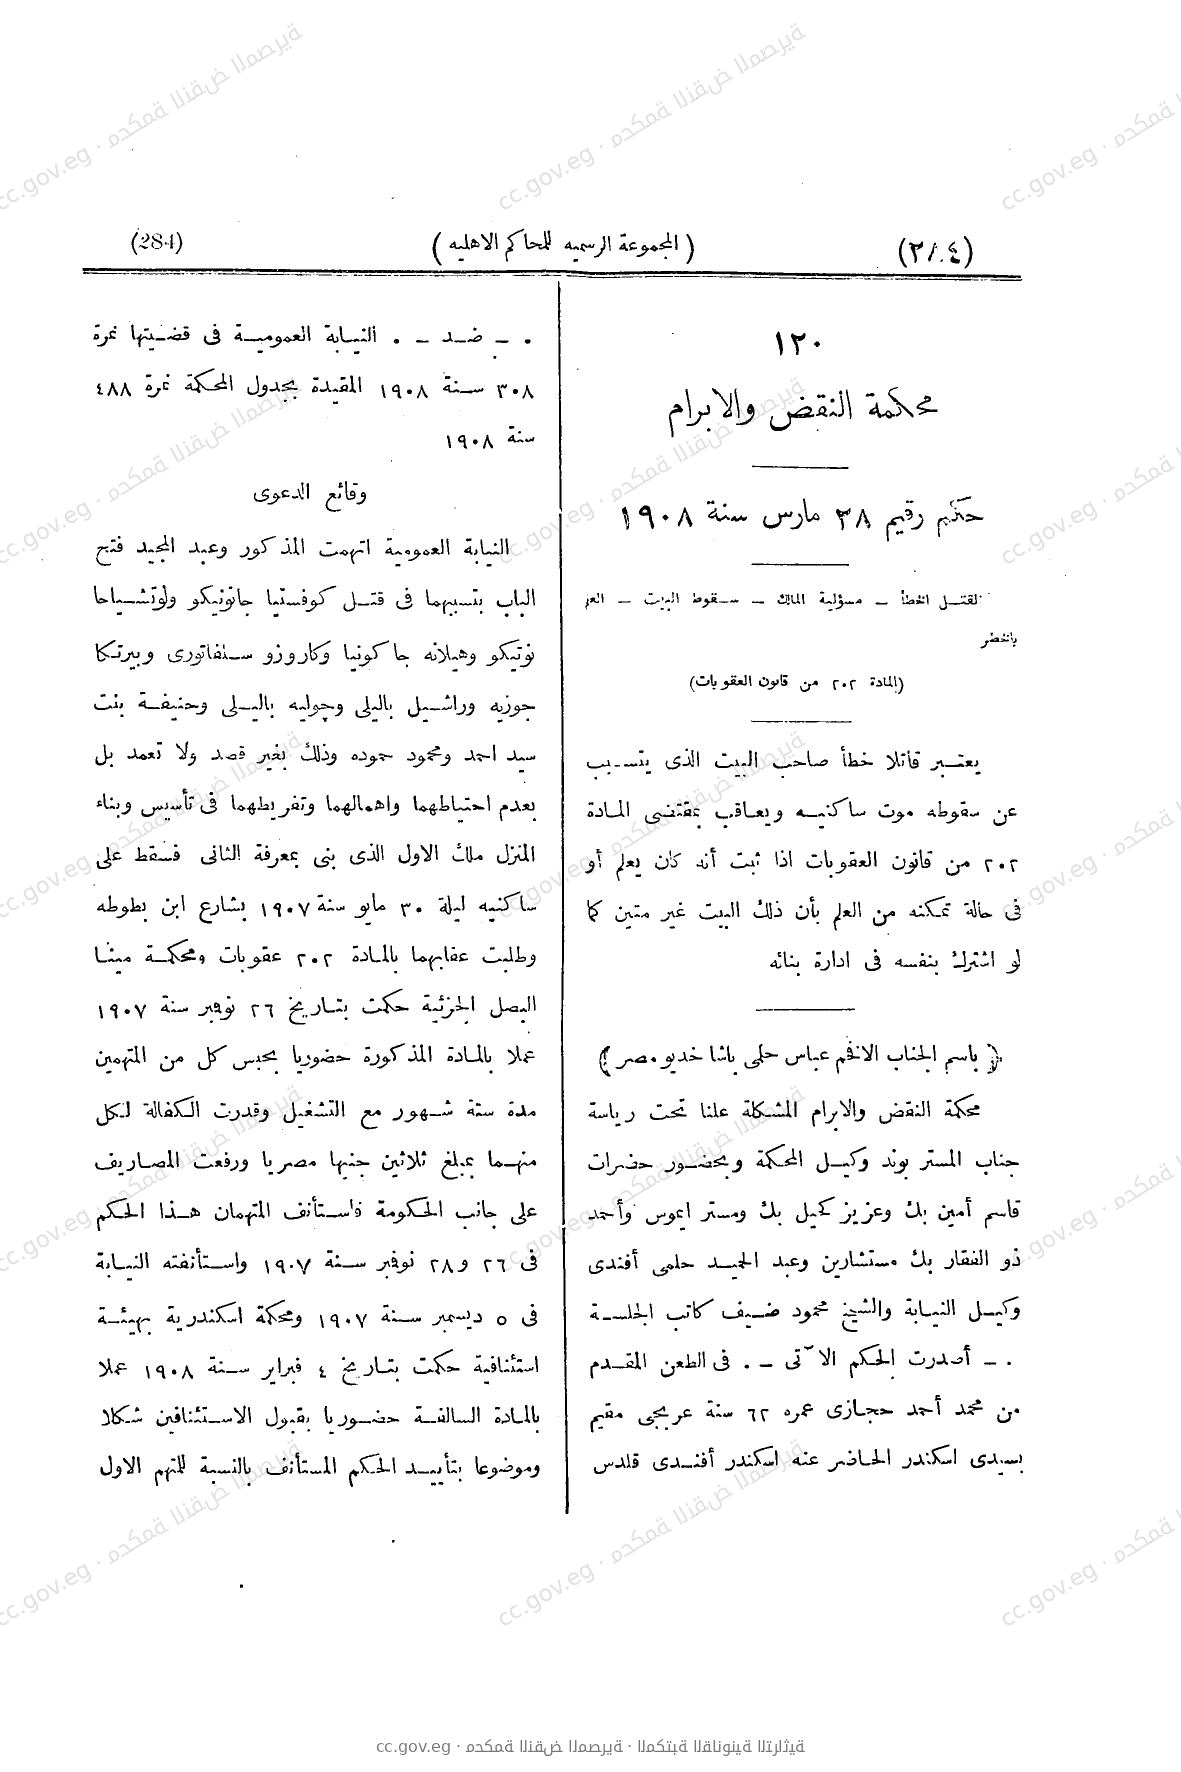 (284)
(المجموعة الرسميه للمحاكم الاهليه)
(٢٨٤)
١٢٠
محكمة النقض والابرام
حكم رقيم ٢٨ مارس سنة ١٩٠٨
القتــل الخطأ – مسؤلية المالك – سقوط البيت – العلم
بالخطر
(المادة ٢٠٢ من قانون العقوبات)
يعتبر قاتلا خطأ صاحب البيت الذى يتسبب
عن سقوطه موت ساكنيه ويعاقب بمقتضى المادة
٢٠٢ من قانون العقوبات اذا ثبت أنه كان يعلم أو
فى حالة تمكنه من العلم بأن ذلك البيت غير متين كما
لو اشترك بنفسه فى ادارة بنائه
(باسم الجناب الافخم عباس حلمى باشا خديو مصر)
محكمة النقض والابرام المشكلة علنا تحت رياسة
جناب المستر بوند وكيل المحكمة وبحضور حضرات
قاسم أمين بك وعزيز كحيل بك ومستر ايموس وأحمد
ذو الفقار بك مستشارين وعبد الحميد حلمى أفندى
وكيل النيابة والشيخ محمود ضيف كاتب الجلسة
. – أصدرت الحكم الآتى – . فى الطعن المقدم
من محمد أحمد حجازى عمره ٦٢ سنة عربجى مقيم
بسيدى اسكندر الحاضر عنه اسكندر أفندى قلدس
. – ضد – . النيابة العمومية فى قضيتها نمرة
٣٠٨ سنة ١٩٠٨ المقيدة بجدول المحكمة نمرة ٤٨٨
سنة ١٩٠٨
وقائع الدعوى
النيابة العمومية اتهمت المذكور وعبد المجيد فتح
الباب بتسببهما فى قتل كوفستيا جانوتيكو ولوتشياحا
نوتيكو وهيلانه جاكونيا وكاروزو سلفاتورى وبيرتكا
جوزيه وراشيل باليلى وجوليه باليلى وحنيفة بنت
سيد احمد ومحمود حموده وذلك بغير قصد ولا تعمد بل
بعدم احتياطهما واهمالهما وتفريطهما فى تأسيس وبناء
المنزل ملك الاول الذى بنى بمعرفة الثانى فسقط على
ساكنيه ليلة ٣٠ مايو سنة ١٩٠٧ بشارع ابن بطوطه
وطلبت عقابهما بالمادة ٢٠٢ عقوبات ومحكمة مينا
البصل الجزئية حكمت بتاريخ ٢٦ نوفمبر سنة ١٩٠٧
عملا بالمادة المذكورة حضوريا بحبس كل من المتهمين
مدة ستة شهور مع التشغيل وقدرت الكفالة لكل
منهما بمبلغ ثلاثين جنيها مصريا ورفعت المصاريف
على جانب الحكومة فاستأنف المتهمان هذا الحكم
فى ٢٦ و٢٨ نوفمبر سنة ١٩٠٧ واستأنفته النيابة
فى ٥ ديسمبر سنة ١٩٠٧ ومحكمة اسكندرية بهيئة
استئنافية حكمت بتاريخ ٤ فبراير سنة ١٩٠٨ عملا
بالمادة السالفة حضوريا بقبول الاستئنافين شكلا
وموضوعا بتأييد الحكم المستأنف بالنسبة للمتهم الاول
cc.gov.eg · محكمة النقض المصرية · المكتبة القانونية التراثية